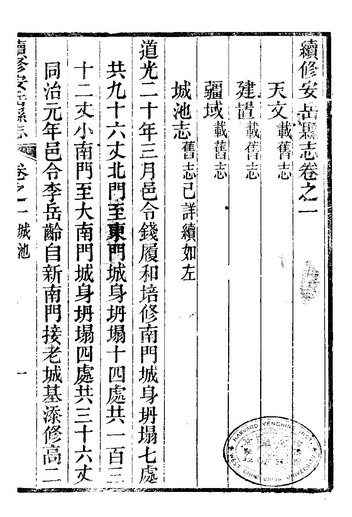 續修安岳縣志卷之一
天文載舊志
建置載舊志
疆域載舊志
城池志舊志已詳續如左
道光二十年三月邑令錢履和培修南門城身坍塌七處
共九十六丈北門至東門城身坍塌十四處共一百三
十二丈小南門至大南門城身坍塌四處共三十六丈
同治元年邑令李岳齡自新南門接老城基添修高二
續修安岳縣志 卷之一 城池 一